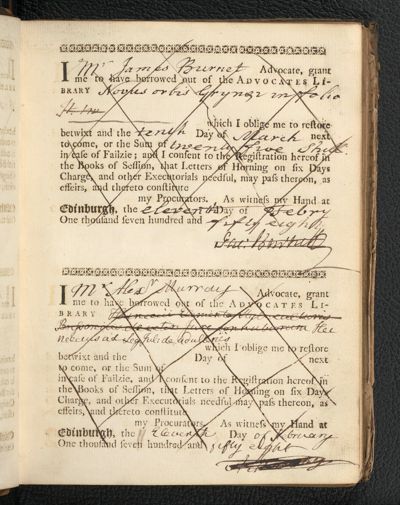 I Mr James Burnet Advocate, grant
me to have borrowed out of the ADVOCATES LI-
BRARY Novus orbis Grynæi in folio
which I oblige me to restore
betwixt and the tenth Day of March next
to come, or the Sum of twenty five Shill.
in case of Failzie; and I consent to the Registration hereof in
the Books of Session, that Letters of Horning on six Days
Charge, and other Executorials needful, may pass thereon, as
effeirs, and thereto constitute
my Procurators. As witness my Hand at
Edinburgh, the eleventh Day of Febry
One thousand seven hundred and fifty eight
I Mr Alexr Murray Advocate, grant
me to have borrowed out of the ADVOCATES LI-
BRARY
which I oblige me to restore
betwixt and the Day of next
to come, or the Sum of
in case of Failzie, and I consent to the Registration hereof in
the Books of Session, that Letters of Horning on six Days
Charge, and other Executorials needful may pass thereon, as
effeirs, and thereto constitute
my Procurators. As witness my Hand at
Edinburgh, the eleventh Day of February
One thousand seven hundred and fifty eight